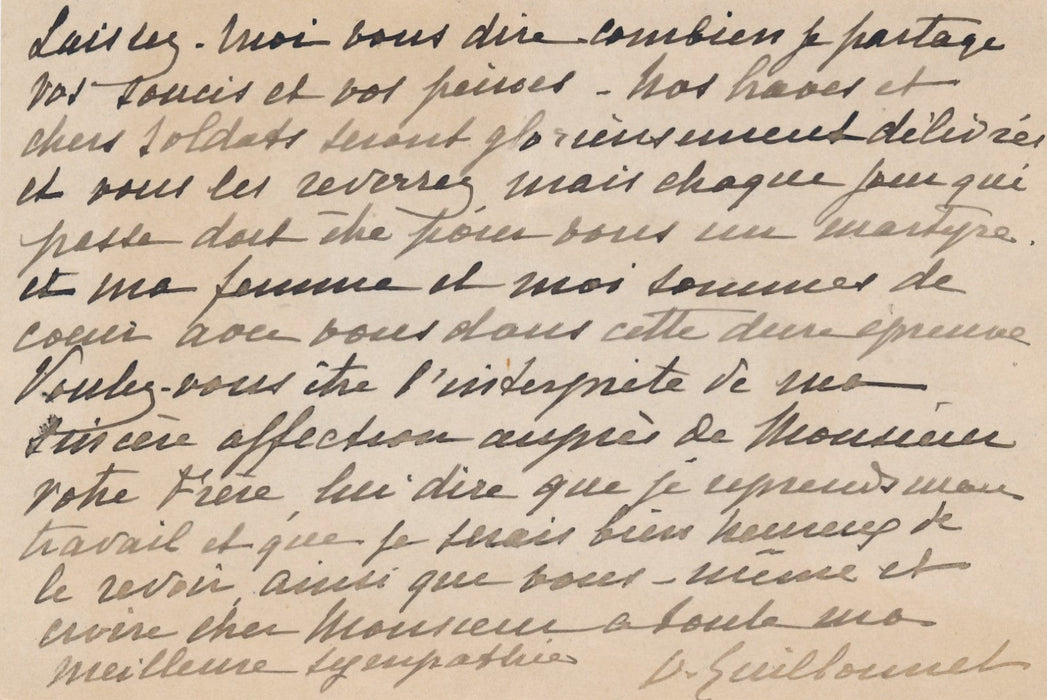 Laissez-moi vous dire combien je partage
vos soucis et vos peines - Nos braves et
chers soldats seront glorieusement délivrés
et vous les reverrez mais chaque jour qui
passe doit être pour vous un martyre.
et ma femme et moi sommes de
coeur avec vous dans cette dure épreuve
Voulez-vous être l'interprète de ma
sincère affection auprès de Monsieur
votre Frère, lui dire que je reprends mon
travail et que je serais bien heureux de
le revoir, ainsi que vous-même et
croire cher Monsieur a toute ma
meilleure sympathie D. Guillonnet